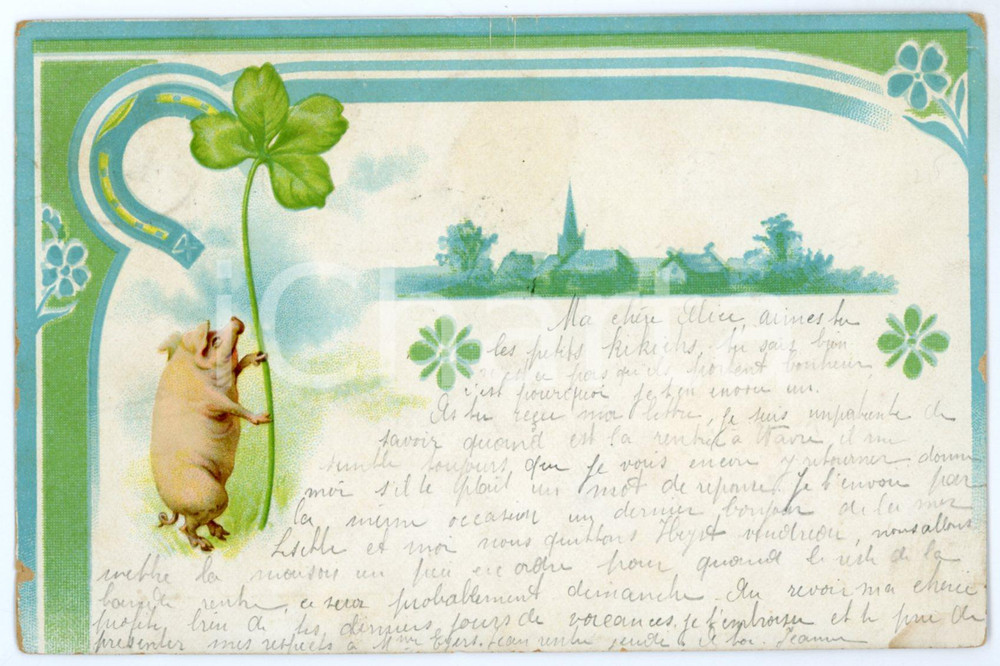 Ma chère Alice, aimes tu
les petits kikichs, tu sais bien
n'est ce pas qu'ils portent bonheur
c'est pourquoi je t'en envoie un.
As tu reçu ma lettre, je suis impatiente de
savoir quand est la rentrée à Wavre, il me
semble toujours que je vais encore y retourner donne
moi s'il te plait un mot de réponse. Je t'envoie par
la même occasion un dernier bonjour de la mer
et moi nous quittons Heyst vendredi, nous allons
mettre la maison un peu en ordre pour quand le reste de la
bande rentre, ce sera probablement dimanche. Au revoir ma chérie
profite bien de tes derniers jours de vacances, je t'embrasse et te prie de
présenter mes respects à Mme Jean rentre jeudi Jeanne
iCharta